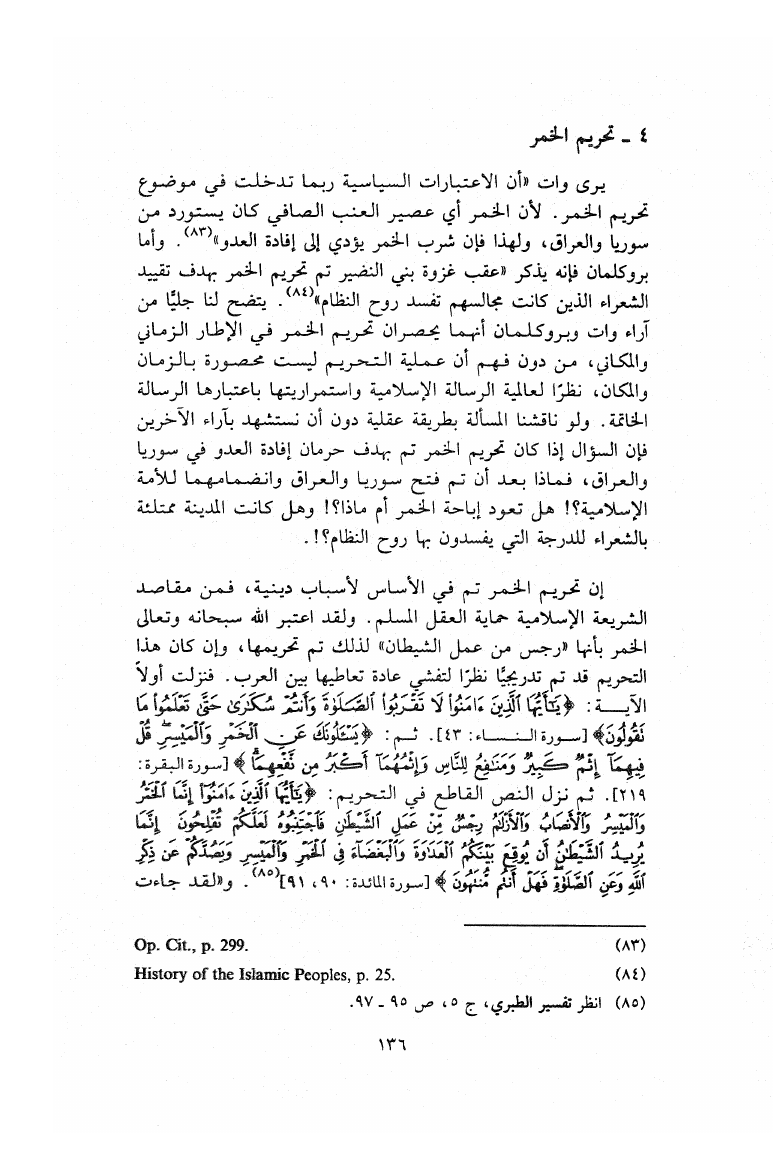 ٤ ـ تحريم الخمر
يرى وات «أن الاعتبارات السياسية ربما تدخلت في موضوع
تحريم الخمر. لأن الخمر أي عصير العنب الصافي كان يستورد من
سوريا والعراق، ولهذا فإن شرب الخمر يؤدي إلى إفادة العدو»(٨٣). وأما
بروكلمان فإنه يذكر «عقب غزوة بني النضير تم تحريم الخمر بهدف تقييد
الشعراء الذين كانت مجالسهم تفسد روح النظام»(٨٤). يتضح لنا جليًّا من
آراء وات وبروكلمان أنهما يحصران تحريم الخمر في الإطار الزماني
والمكاني، من دون فهم أن عملية التحريم ليست محصورة بالزمان
والمكان، نظرًا لعالمية الرسالة الإسلامية واستمراريتها باعتبارها الرسالة
الخاتمة. ولو ناقشنا المسألة بطريقة عقلية دون أن نستشهد بآراء الآخرين
فإن السؤال إذا كان تحريم الخمر تم بهدف حرمان إفادة العدو في سوريا
والعراق، فماذا بعد أن تم فتح سوريا والعراق وانضمامهما للأمة
الإسلامية؟! هل تعود إباحة الخمر أم ماذا؟! وهل كانت المدينة ممتلئة
بالشعراء للدرجة التي يفسدون بها روح النظام؟!.
إن تحريم الخمر تم في الأساس لأسباب دينية، فمن مقاصد
الشريعة الإسلامية حماية العقل المسلم. ولقد اعتبر الله سبحانه وتعالى
الخمر بأنها «رجس من عمل الشيطان» لذلك تم تحريمها، وإن كان هذا
التحريم قد تم تدريجيًّا نظرًا لتفشي عادة تعاطيها بين العرب. فنزلت أولاً
الآيـــة: ﴿يَٰٓأَيُّهَا ٱلَّذِينَ ءَامَنُوا۟ لَا تَقْرَبُوا۟ ٱلصَّلَوٰةَ وَأَنتُمْ سُكَٰرَىٰ حَتَّىٰ تَعْلَمُوا۟ مَا
تَقُولُونَ﴾ [سورة النساء: ٤٣]. ثم: ﴿يَسْـَٔلُونَكَ عَنِ ٱلْخَمْرِ وَٱلْمَيْسِرِ ۖ قُلْ
فِيهِمَآ إِثْمٌ كَبِيرٌ وَمَنَٰفِعُ لِلنَّاسِ وَإِثْمُهُمَآ أَكْبَرُ مِن نَّفْعِهِمَا ۗ﴾ [سورة البقرة:
٢١٩]. ثم نزل النص القاطع في التحريم: ﴿يَٰٓأَيُّهَا ٱلَّذِينَ ءَامَنُوٓا۟ إِنَّمَا ٱلْخَمْرُ
وَٱلْمَيْسِرُ وَٱلْأَنصَابُ وَٱلْأَزْلَٰمُ رِجْسٌ مِّنْ عَمَلِ ٱلشَّيْطَٰنِ فَٱجْتَنِبُوهُ لَعَلَّكُمْ تُفْلِحُونَ إِنَّمَا
يُرِيدُ ٱلشَّيْطَٰنُ أَن يُوقِعَ بَيْنَكُمُ ٱلْعَدَٰوَةَ وَٱلْبَغْضَآءَ فِى ٱلْخَمْرِ وَٱلْمَيْسِرِ وَيَصُدَّكُمْ عَن ذِكْرِ
ٱللَّهِ وَعَنِ ٱلصَّلَوٰةِ ۖ فَهَلْ أَنتُم مُّنتَهُونَ﴾ [سورة المائدة: ٩٠، ٩١](٨٥). و«لقد جاءت
(٨٣) Op. Cit., p. 299.
(٨٤) History of the Islamic Peoples, p. 25.
(٨٥) انظر تفسير الطبري، ج ٥، ص ٩٥ ـ ٩٧.
١٣٦